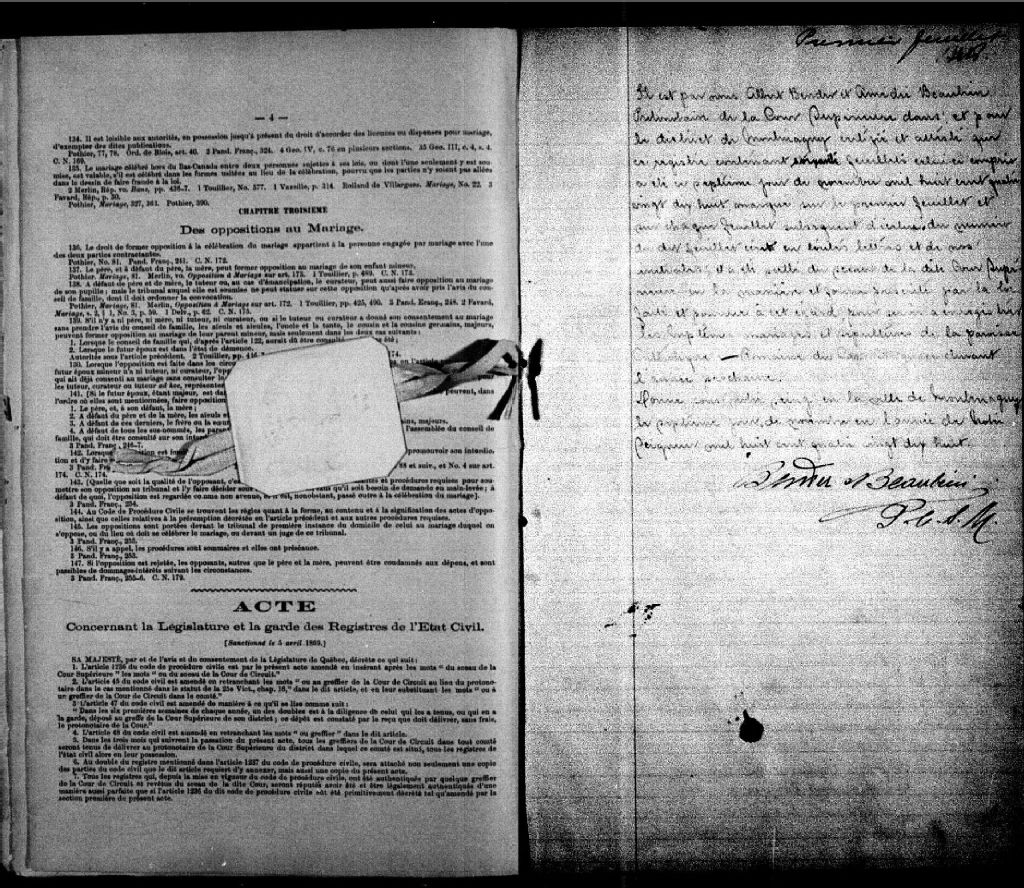 — 4 —
134. Il est loisible aux autorités, en possession jusqu'à présent du droit d'accorder des licences ou dispenses pour mariage,
d'exempter des dites publications.
Pothier, 77, 78. Ord. de Blois, art. 40. 3 Pand. Franç., 324. 4 Geo. IV, c. 76 en plusieurs sections. 35 Geo. III, c. 4, s. 4.
C. N. 169.
135. Le mariage célébré hors du Bas-Canada entre deux personnes sujettes à ses lois, ou dont l'une seulement y est sou-
mise, est valable, s'il est célébré dans les formes usitées au lieu de la célébration, pourvu que les parties n'y soient pas allées
dans le dessin de faire fraude à la loi.
2 Merlin, Rép. vo. Bans, pp. 436-7. 1 Touillier, No. 577. 1 Vazeille, p. 314. Rolland de Villargues. Mariage, No. 22. 3
Favard, Rép., p. 50.
Pothier, Mariage, 327, 361. Pothier, 390.
CHAPITRE TROISIEME
Des oppositions au Mariage.
136. Le droit de former opposition à la célébration du mariage appartient à la personne engagée par mariage avec l'une
des deux parties contractantes.
Pothier, No. 81. Pand. Franç., 241. C. N. 172.
137. Le père, et à défaut du père, la mère, peut former opposition au mariage de son enfant mineur.
Pothier, Mariage, 81. Merlin, vo. Opposition à Mariage sur art. 173. 1 Touillier, p. 489. C. N. 173.
138. A défaut de père et de mère, le tuteur ou, au cas d'émancipation, le curateur, peut aussi faire opposition au mariage
de son pupille; mais le tribunal auquel elle est soumise ne peut statuer sur cette opposition qu'après avoir pris l'avis du con-
seil de famille, dont il doit ordonner la convocation.
Pothier, Mariage, 81. Merlin, Opposition à Mariage sur art. 172. 1 Touillier, pp. 425, 490. 3 Pand. Franç., 248. 2 Favard,
Mariage, s. 2, § 1, No. 3, p. 59. 1 Delv., p. 62. C. N. 175.
139. S'il n'y a ni père, ni mère, ni tuteur, ni curateur, ou si le tuteur ou curateur a donné son consentement au mariage
sans prendre l'avis du conseil de famille, les aïeuls et aïeules, l'oncle et la tante, le cousin et la cousine germains, majeurs,
peuvent former opposition au mariage de leur parent mineur, mais seulement dans les deux cas suivants:
1. Lorsque le conseil de famille qui, d'après l'article 122, aurait dû être consulté
2. Lorsque le futur époux est dans l'état de démence.
Autorités sous l'article précédent. 2 Touillier, pp.
Lorsque l'opposition est faite dans les circ
futur époux mineur n'a ni tuteur, ni curateur, l'opp
qui ait déjà consenti au mariage sans consulter le
les tuteur, curateur ou tuteur ad hoc, représente
141. [Si le futur époux, étant majeur, est dé peuvent, dans
l'ordre où elles sont mentionnées, faire opposition
1. Le père, et, à son défaut, la mère;
2. A défaut du père et de la mère, les aïeuls e
3. A défaut de ces derniers, le frère ou la sœu ins, majeurs.
4. A défaut de tous les sus-nommés, les pare l'assemblée du conseil de
famille, qui doit être consulté sur son inter
3 Pand. Franç., 246-7.
142. Lorsque
tion et d'y faire
3 Pand. Fra 88 et suiv., et No. 4 sur art.
174. C. N. 174.
143. [Quelle que soit la qualité de l'opposant, c'est et procédures requises pour sou-
mettre son opposition au tribunal et l'y faire décider qu'il soit besoin de demande en main-levée; à
défaut de quoi, l'opposition est regardée comme non avenue, et il est, nonobstant, passé outre à la célébration du mariage].
3 Pand. Franç., 254.
144. Au Code de Procédure Civile se trouvent les règles quant à la forme, au contenu et à la signification des actes d'oppo-
sition, ainsi que celles relatives à la péremption décrétée en l'article précédent et aux autres procédures requises.
145. Les oppositions sont portées devant le tribunal de première instance du domicile de celui au mariage duquel on
s'oppose, ou du lieu où doit se célébrer le mariage, ou devant un juge de ce tribunal.
3 Pand. Franç., 253.
146. S'il y a appel, les procédures sont sommaires et elles ont préséance.
3 Pand. Franç., 253.
147. Si l'opposition est rejetée, les opposants, autres que le père et la mère, peuvent être condamnés aux dépens, et sont
passibles de dommages-intérêts suivant les circonstances.
3 Pand. Franç., 255-6. C. N. 179.
ACTE
Concernant la Législature et la garde des Registres de l'Etat Civil.
[Sanctionné le 5 avril 1869.]
SA MAJESTÉ, par et de l'avis et du consentement de la Législature de Québec, décrète ce qui suit:
1. L'article 1236 du code de procédure civile est par le présent acte amendé en insérant après les mots " du sceau de la
Cour Supérieure " les mots " ou du sceau de la Cour de Circuit."
2. L'article 45 du code civil est amendé en retranchant les mots " ou au greffier de la Cour de Circuit au lieu du protono-
taire dans le cas mentionné dans le statut de la 25e Vict., chap. 16," dans le dit article, et en leur substituant les mots " ou à
un greffier de la Cour de Circuit dans le comté."
3 L'article 47 du code civil est amendé de manière à ce qu'il se lise comme suit:
" Dans les six premières semaines de chaque année, un des doubles est à la diligence de celui qui les a tenus, ou qui en a
la garde, déposé au greffe de la Cour Supérieure de son district; ce dépôt est constaté par le reçu que doit délivrer, sans frais,
le protonotaire de la Cour."
4. L'article 48 du code civil est amendé en retranchant les mots " ou greffier " dans le dit article.
5. Dans les trois mois qui suivront la passation du présent acte, tous les greffiers de la Cour de Circuit dans tout comté
seront tenus de délivrer au protonotaire de la Cour Supérieure du district dans lequel ce comté est situé, tous les registres de
l'état civil alors en leur possession.
6. Au double du registre mentionné dans l'article 1237 du code de procédure civile, sera attaché non seulement une copie
des parties du code civil que le dit article requiert d'y annexer, mais aussi une copie du présent acte.
7. Tous les registres qui, depuis la mise en vigueur du code de procédure civile, ont été authentiqués par quelque greffier
de la Cour de Circuit et revêtus du sceau de la dite Cour, seront réputés avoir été et être légalement authentiqués d'une
manière aussi parfaite que si l'article 1236 du dit code de procédure civile eût été primitivement décrété tel qu'amendé par la
section première du présent acte.
Premier feuillet
Il est par nous, Albert Bender et Amedie Beaubien
Protonotaire de la Cour Supérieure dans et pour
le district de Montmagny certifié et attesté que
ce registre contenant feuillets celui ci compris
a été ce septième jour de novembre mil huit cent quatre
vingt dix huit marqué sur le premier feuillet et
sur chaque feuillet subsequent d'icelui du numéro
du dit feuillet écrit en toutes lettres et de nos
initiales, et a été scellé du sceau de la dite Cour Supé-
rieure en la manière et forme prescrite par la loi
faite et pourvue à cet égard, pour servir à enregistrer
les baptêmes, mariages et sépultures de la paroisse
l'année prochaine.
Donné sous notre seing en la ville de Montmagny
le septième jour de novembre en l'année de Notre
Seigneur mil huit cent quatre vingt dix huit.
Bender & Beaubien
P. C. S. M.